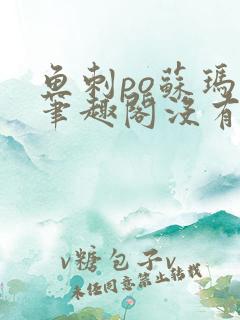 魚刺po蘇瑪
筆趣閣没有
v糖包子v
未经同意禁止转载